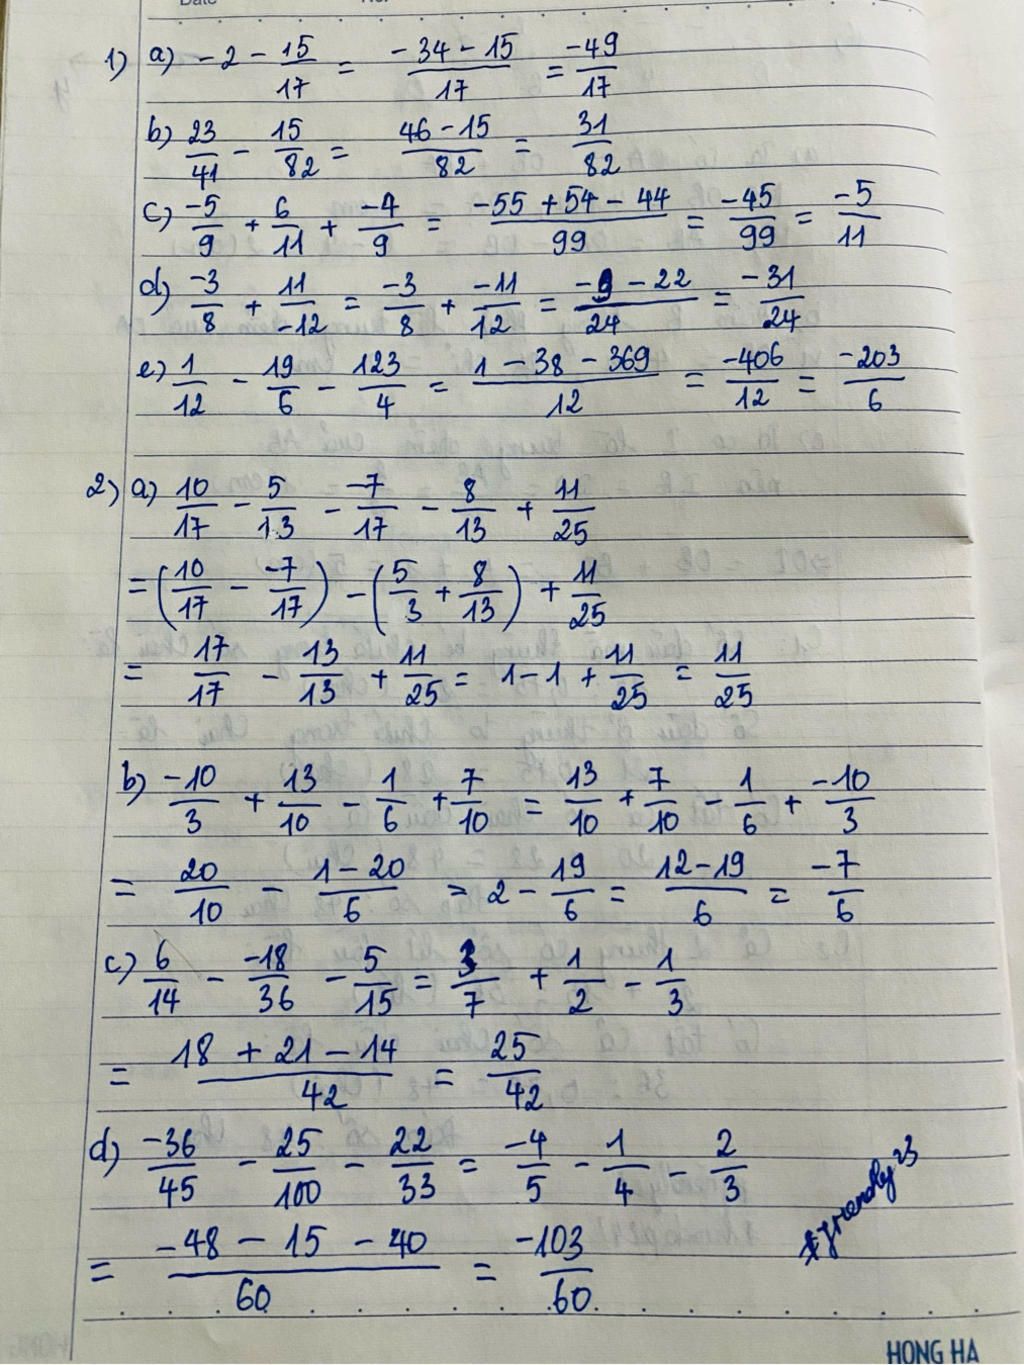 Date
1) a) -2 - 15/17 = (-34 - 15)/17 = -49/17
b) 23/41 - 15/82 = (46 - 15)/82 = 31/82
c) -5/9 + 6/11 + -4/9 = (-55 + 54 - 44)/99 = -45/99 = -5/11
d) -3/8 + 11/-12 = -3/8 + -11/12 = (-9 - 22)/24 = -31/24
e) 1/12 - 19/6 - 123/4 = (1 - 38 - 369)/12 = -406/12 = -203/6
2) a) 10/17 - 5/13 - -7/17 - 8/13 + 11/25
= (10/17 - -7/17) - (5/3 + 8/13) + 11/25
= 17/17 - 13/13 + 11/25 = 1 - 1 + 11/25 = 11/25
b) -10/3 + 13/10 - 1/6 + 7/10 = 13/10 + 7/10 - 1/6 + -10/3
= 20/10 - (1 - 20)/6 = 2 - 19/6 = (12 - 19)/6 = -7/6
c) 6/14 - -18/36 - 5/15 = 3/7 + 1/2 - 1/3
= (18 + 21 - 14)/42 = 25/42
d) -36/45 - 25/100 - 22/33 = -4/5 - 1/4 - 2/3
= (-48 - 15 - 40)/60 = -103/60
HONG HA